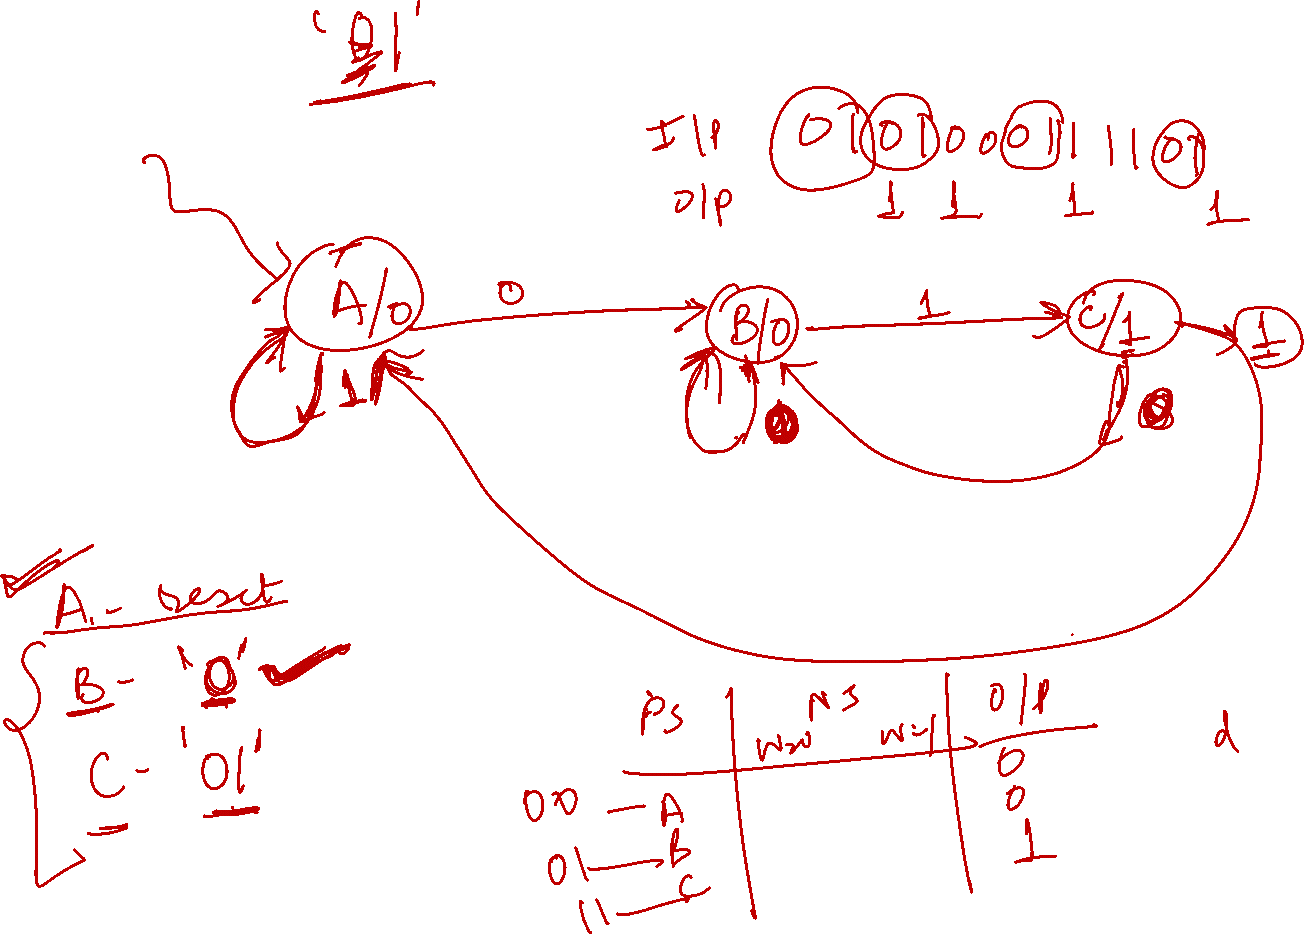 '01'
I/P 01 01 0 0 01 1 1 1 01
O/P 1 1 1 1
A/0 0 B/0 1 C/1 1
1
A - reset
B - '0'
C - '01'
PS NS O/P
W=0 W=1
d
00 — A 0
01 — B 0
11 — C 1